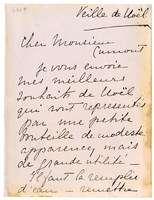 Veille de Noël
Cher Monsieur
Cumont
je vous envoie
mes meilleurs
souhaits de Noël
qui sont représentés
par une petite
bouteille de modeste
apparence, mais
de grande utilité
d'eau — remettre